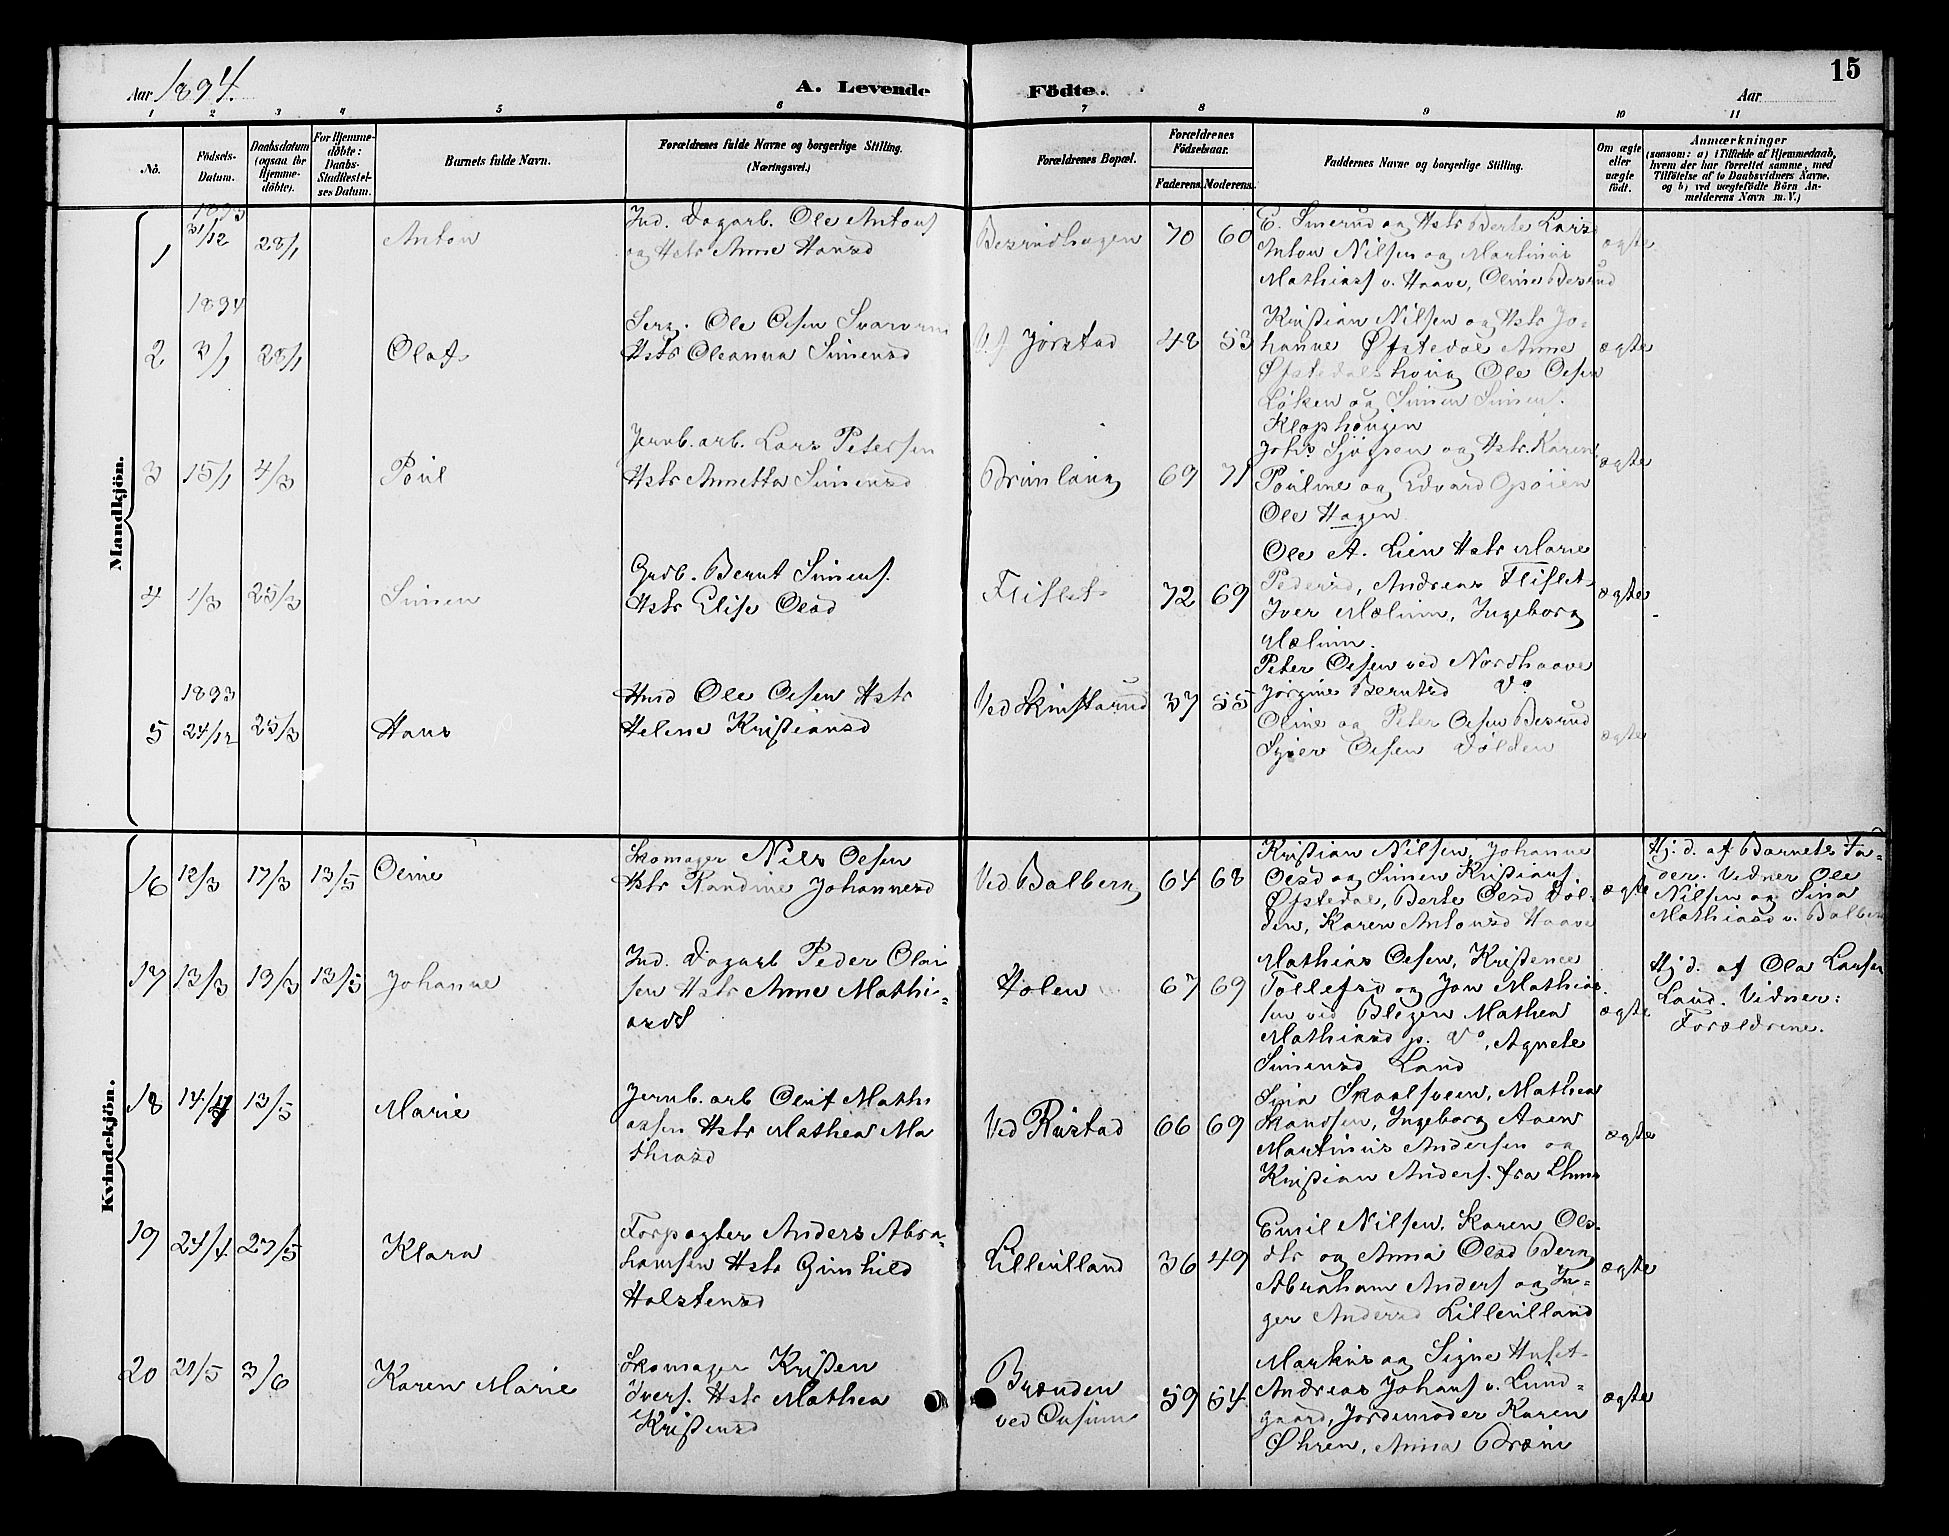 15
Aar 1894.
A. Levende Födte.
Aar
1 2 3 4 5 6 7 8 9 10 11
No.
Födsels-
Datum.
Daabsdatum
(ogsaa for
Hjemme-
döbte).
For Hjemme-
döbte:
Daabs-
Stadfæstel-
ses Datum.
Barnets fulde Navn.
Forældrenes fulde Navne og borgerlige Stilling.
(Næringsvei.)
Forældrenes Bopæl.
Forældrenes
Födselsaar.
Faderens. Moderens.
Faddernes Navne og borgerlige Stilling.
Om ægte
eller
uægte
födt.
Anmærkninger
(saasom: a) i Tilfælde af Hjemmedaab,
hvem der har forrettet samme, med
Tilföielse af to Daabsvidners Navne,
og b) ved uægtefödte Börn An-
melderens Navn m. V.)
Mandkjön.
1
1893
31/12
28/1
Anton
Ind. Dagarb. Ole Antons
og Hstr Anne Hansd
Besrudhagen
70 60
E. Smerud og Hstr Berte Larsd
Anton Nilsen og Martinus
Mathiass v. Haave, Oline Besrud
ægte
2
1894
3/1
28/1
Olaf
Serg. Ole Olsen
Hstr Oleanna Simensd
Jørstad
48 53
Kristian Nilsen og Hstr Jo-
hanne Øfstedal Anne
Øfstedalshaug Ole Olsen
Løken og Simen Simens.
Klaphaugen
ægte
3
15/1
4/3
Poul
Jernb. arb. Lars Petersen
Hstr Annetta Simensd
Brunlaug
69 71
Johs Sjøgren og Hstr. Karen
Pouline og Edvard Opsøien
Ole Hagen
ægte
4
1/3
25/3
Simen
Grdb. Bernt Simens.
Hstr Elise Olsd
Fliflet
72 69
Ole A. Lien Hstr Marie
Pedersd, Andreas Fliflet
Iver Mælum, Ingeborg
Mælum.
ægte
5
1893
24/12
25/3
Hans
Husd Ole Olsen Hstr
Helene Kristiansd
Ved Skinstarud
37 55
Peter Olsen ved Nordhaave
Jørgine Berntsd Do
Oline og Peter Olsen Besrud
Syver Olsen Dølden
ægte
Kvindekjön.
16
12/3
17/3
13/5
Oline
Skomager Nils Olsen
Hstr Randine Johannesd
Ved Balberg
64 68
Kristian Nilsen, Johanne
Olsd og Simen Kristians.
Øfstedal, Berte Olsd Døl-
den, Karen Antonsd Haave
ægte
Hj. d. af Barnets Fa-
der. Vidner Ole
Nilsen og Sina
Mathiasd v. Balberg
17
13/3
19/3
13/5
Johanne
Ind. Dagarb Peder Olai
sen Hstr Anne Mathi-
asd
Holen
67 69
Mathias Olsen, Kristence
Tollefsd og Jon Mathias
sen ved Blegen Mathea
Mathiasd p. Do, Agnete
Simensd Land
ægte
Hj. d. af Ola Larsen
Land. Vidner:
Forældrene.
18
14/4
13/5
Marie
Jernb. arb Oluf Mathi
assen Hstr Mathea Ma
thiasd
Ved Rustad
66 69
Sina Skaalsveen, Mathea
Skandsen, Ingeborg Aaen
Martinus Andersen og
Kristian Anders. fra
ægte
19
24/4
27/5
Klara
Forpagter Anders Abra-
hamsen Hstr Gunhild
Halstensd
Lilleulland
36 49
Emil Nilsen, Karen Ols-
dtr og Anna Olsd Berg
Abraham Anders og In-
ger Andersd Lilleulland
ægte
20
21/5
3/6
Karen Marie
Skomager Kristen
Ivers. Hstr Mathea
Kristensd
Brænden
ved Ousum
59 54
Markus og Signe Huset
Andreas Johans v. Lund-
gaard, Jordemoder Karen
Øhren, Anna Bræin
ægte